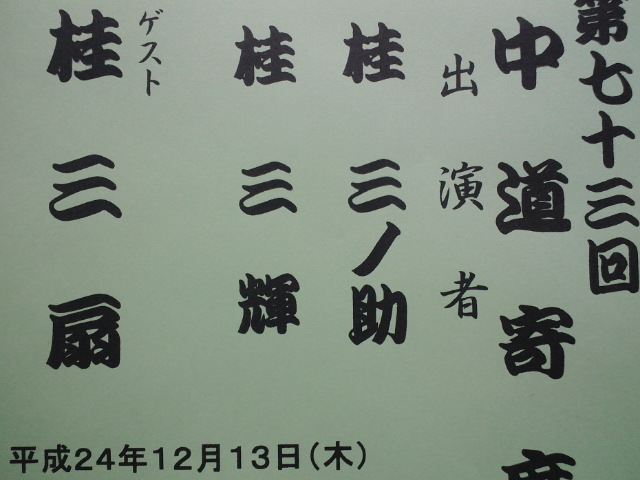 第七十三回
中道寄席
出演者
桂三ノ助
桂三輝
ゲスト
桂三扇
平成24年12月13日(木)